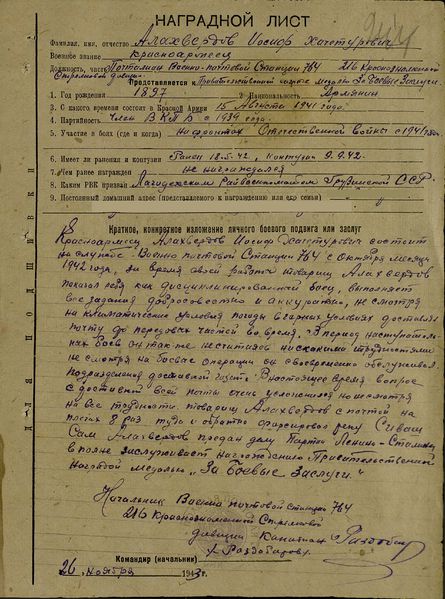 НАГРАДНОЙ ЛИСТ
Фамилия, имя, отчество Алахвердов Иосиф Хачетурович
Военное звание красноармеец
Должность, часть Почтальон Военно-почтовой Станции 764 216 Краснознаменной
дивизии
Представляется к Правительственной медалью За Боевые Заслуги
1. Год рождения 1897 2. Национальность Армянин
3. С какого времени состоит в Красной Армии 15 Августа 1941 года
4. Партийность Член ВКПб с 1939 года.
5. Участие в боях (где и когда) на фронтах Отечественной войны с 1941
6. Имеет ли ранения и контузии Ранен 18.5.42, контузия 9.9.42.
7. Чем ранее награжден не награждался
8. Каким РВК призван Лагодехским Райвоенкоматом Грузинской ССР
9. Постоянный домашний адрес (представляемого к награждению или его семьи)
Краткое, конкретное изложение личного боевого подвига или заслуг
Красноармеец Алахвердов Иосиф Хачетурович состоит
на службе Военно почтовой Станции 764 с октября месяца
1942 года, за время своей работы товарищ Алахвердов
показал себя как дисциплинированный боец, выполняет
все задания добросовестно и аккуратно, не смотря
на климатические условия погоды в горных условиях доставлял
почту до передовых частей во время. В период наступатель-
ных боев он так же не считаяс нискакими трудностями
не смотря на боевые операции он своевременно обслуживал
Подразделения доставкой газет. В настоящее время вопрос
с доставкой всей почты очень усложнился но несмотря
на все трудности товарищ Алахвердов с почтой на
плотах 8 раз туда и обратно форсировал реку Сиваш
Сам Алахвердов предан делу Партии Ленина-Сталина
вполне заслуживает награждению Правительственной
Наградой медалью "За Боевые Заслуги".
Начальник Военно почтовой Станции 764
216 Краснознаменной
дивизии Капитан
/ Раздобаров /
Командир (начальник)
26 ноября 1943 г.